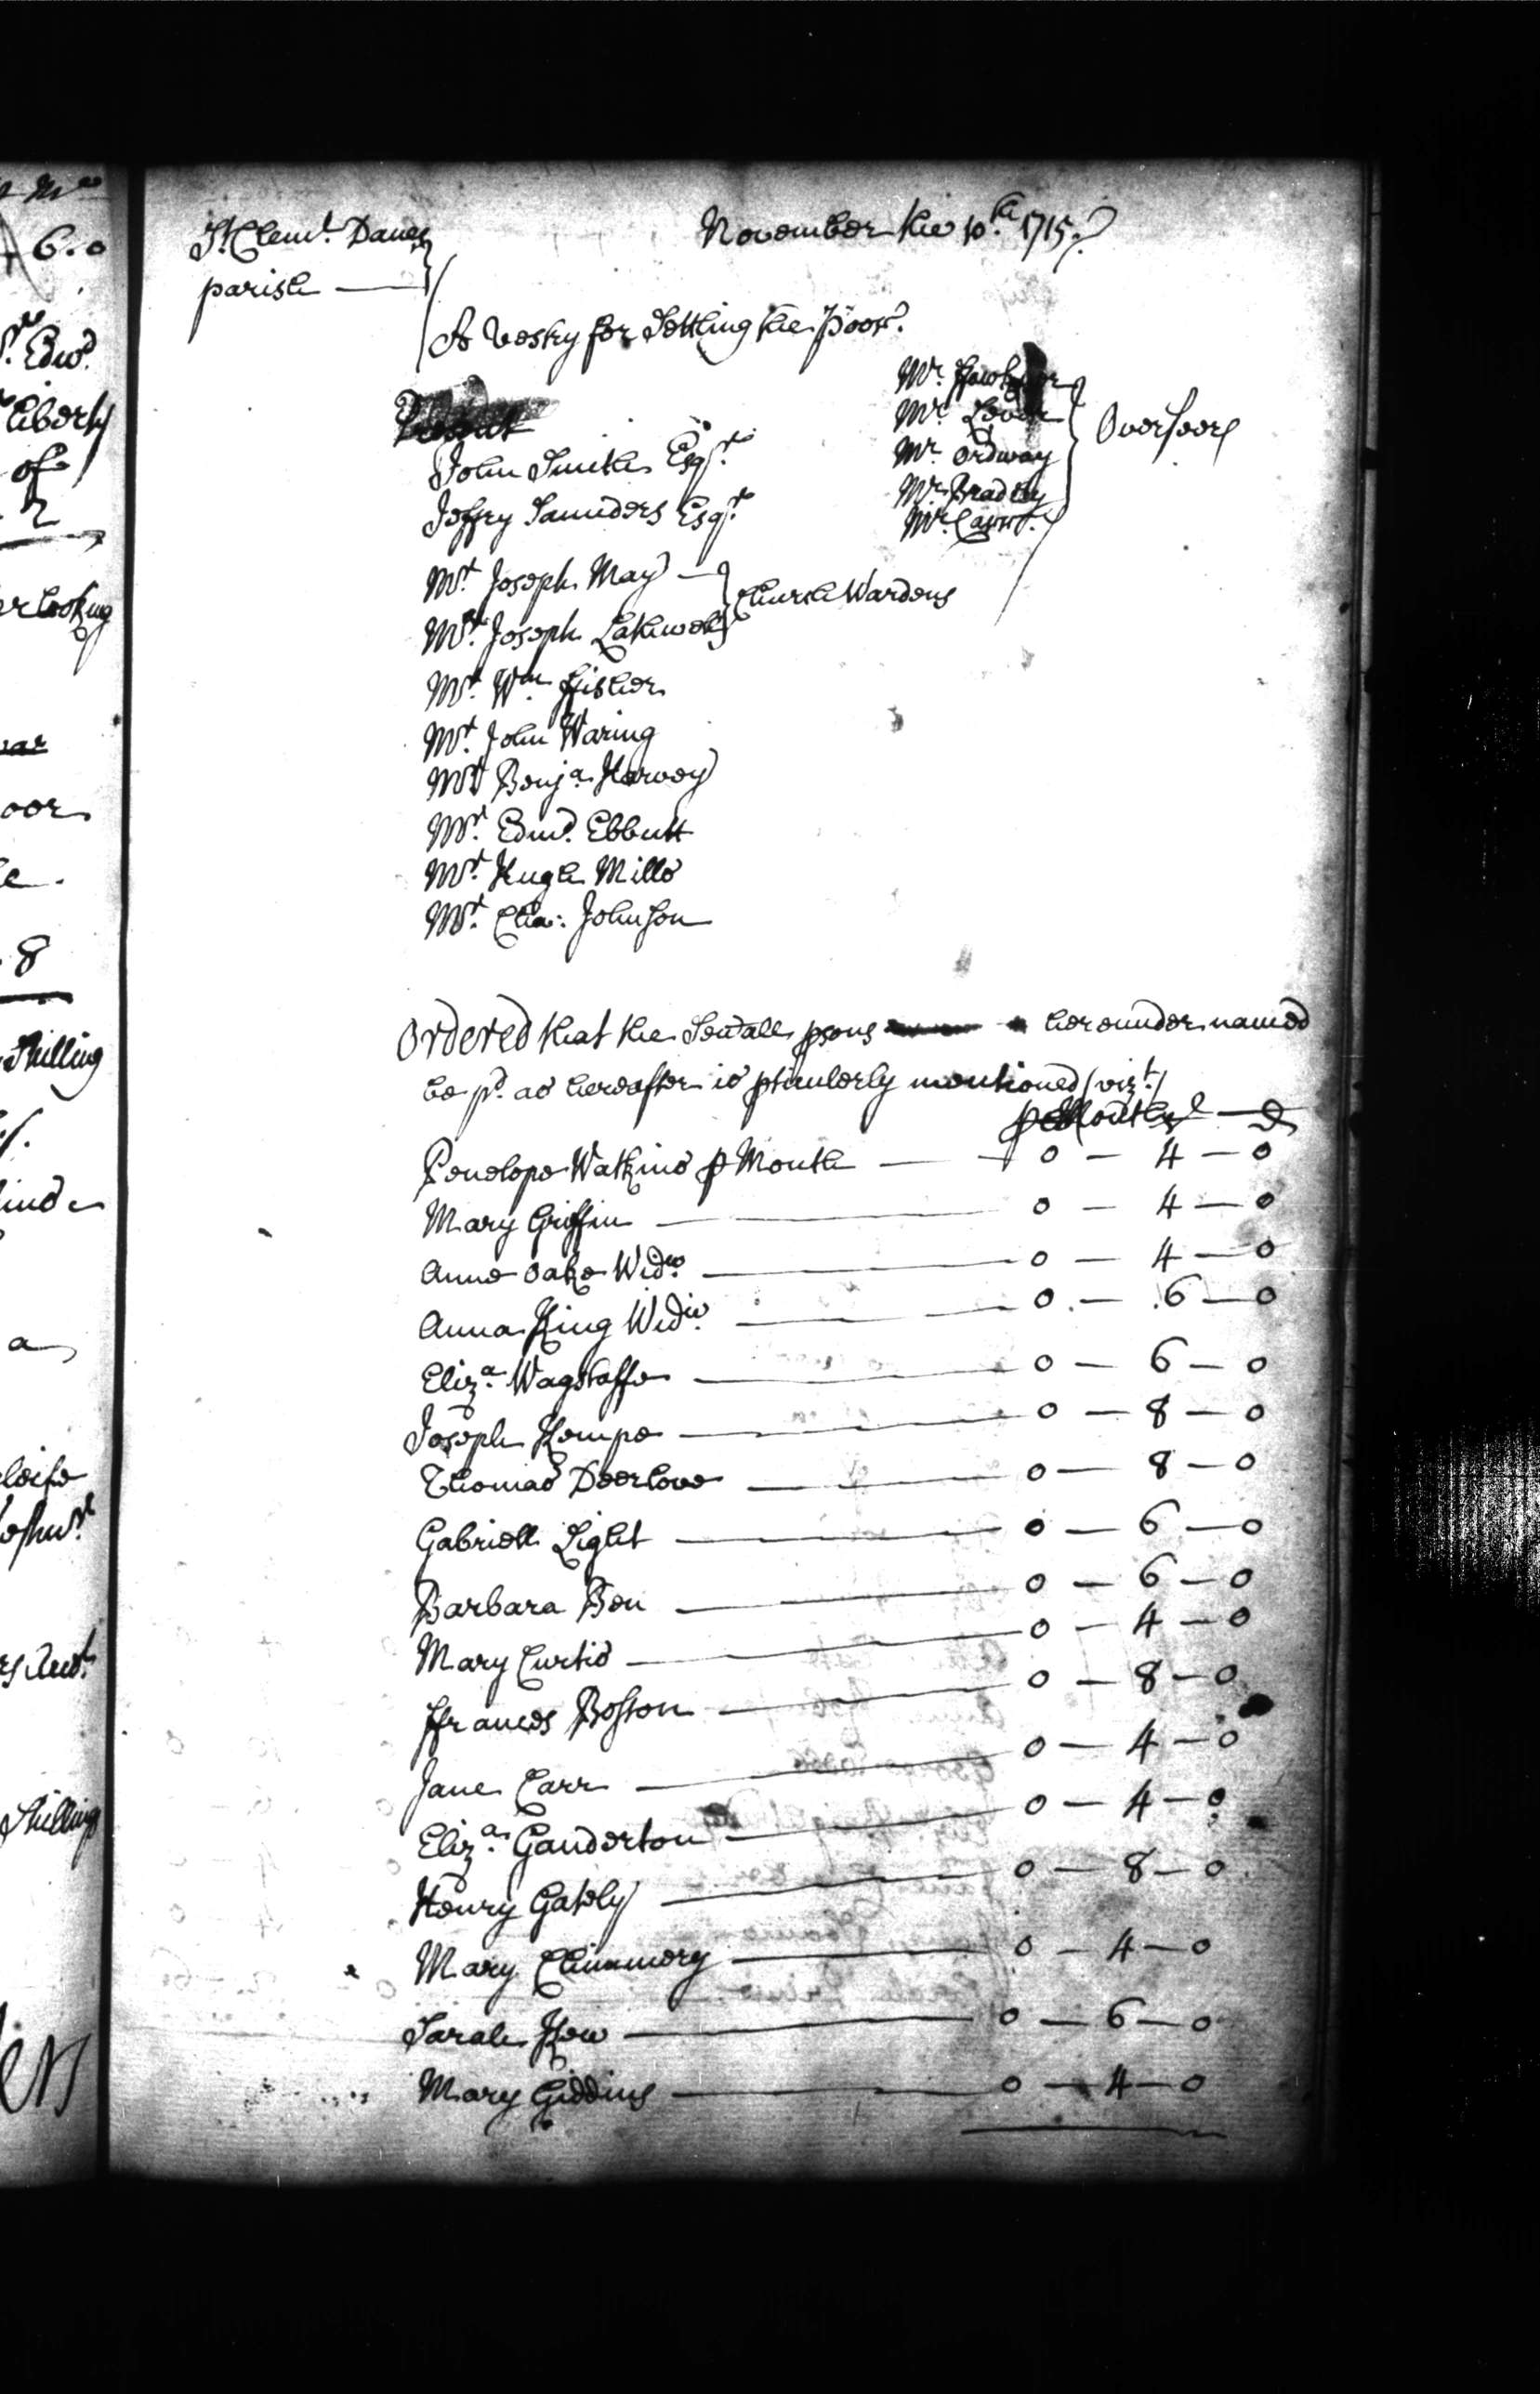 St. Clemt. Danes
parish
November the 10th. 1715.
A Vestry for Settling the Poor.
Present
John Smith Esqr.
Jeffry Saunders Esqr.
Mr. Joseph May
Mr. Joseph Lakewell
Church Wardens
Mr.
Mr. Lever
Mr. Ordway
Mr. Bradley
Mr. Carr.
Overseers
Mr. Wm. ffisher
Mr. John Waring
Mr. Benja. Harvey
Mr. Edmd. Ebbutt
Mr. Hugh Mills
Mr. Cha: Johnson
Ordered that the Sevall psons hereunder named
be pd. as hereafter is pticulerly mentioned (vizt.)
p Month
Penelope Watkins p Month — 0 — 4 — 0
Mary Griffin — 0 — 4 — 0
Anne Oake Widw. — 0 — 4 — 0
Anna King Widw. — 0 — 6 — 0
Eliza. Wagstaffe — 0 — 6 — 0
Joseph Kempe — 0 — 8 — 0
Thomas Deerlove — 0 — 8 — 0
Gabriell Light — 0 — 6 — 0
Barbara Ben — 0 — 6 — 0
Mary Curtis — 0 — 4 — 0
ffrances Bosson — 0 — 8 — 0
Jane Carr — 0 — 4 — 0
Eliza. Ganderton — 0 — 4 — 0
Henry Gately — 0 — 8 — 0
Mary Chinnmery — 0 — 4 — 0
Sarah Kew — 0 — 6 — 0
Mary Giddins — 0 — 4 — 0